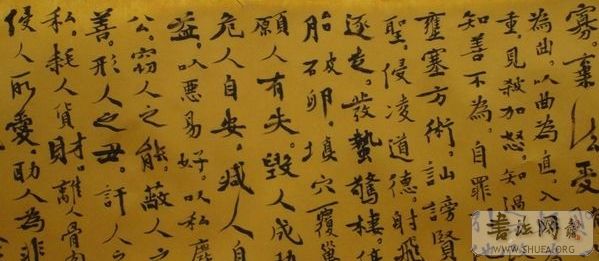 寡。棄法受
為曲。以曲為直。入
重見殺加怒。知過
知善不為。自罪
壅塞方術。訕謗賢
聖。侵凌道德。射飛
逐走。發蟄驚棲。
胎破卵。填穴覆巢
願人有失。毀人成功
危人自安。減人自
益。以惡易好。以私廢
公。竊人之能。蔽人之
善。形人之丑。訐人之
私。耗人貨財。離人骨肉
侵人所愛。助人為非
書法网
WWW.SHUFA.ORG